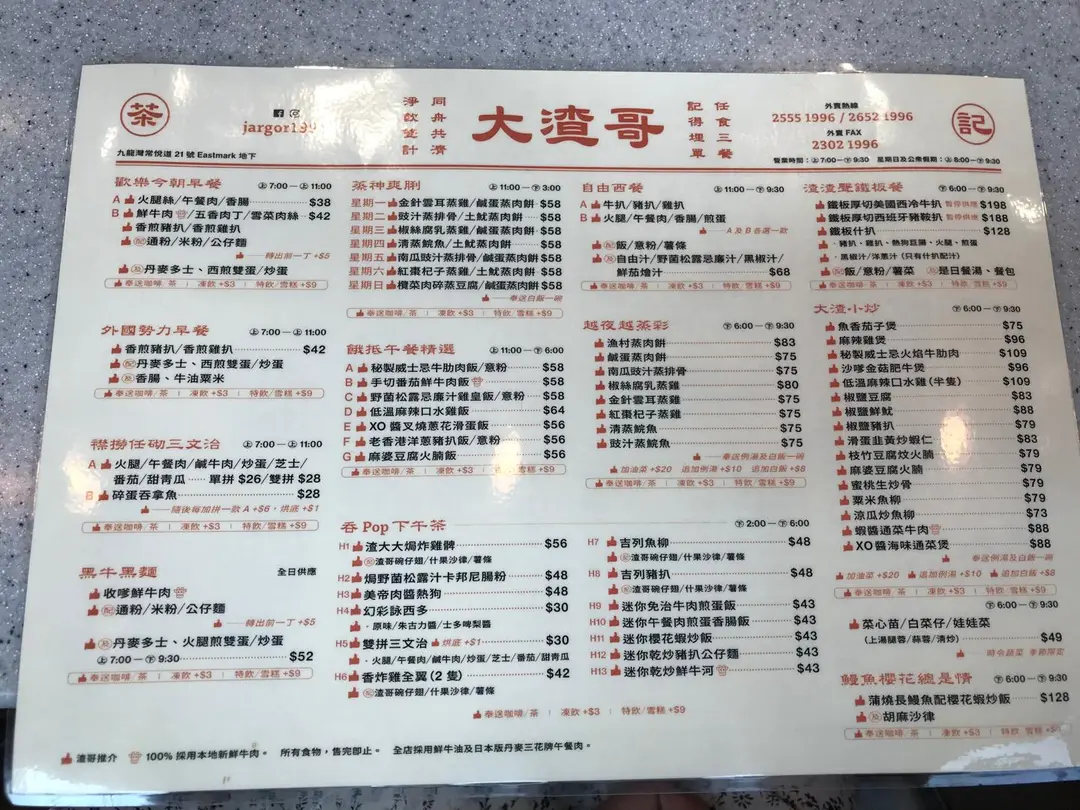 茶
jargor199
淨飲莖計
同舟共濟
大渣哥
記得埋單
任食三餐
外賣熱線
2555 1996 / 2652 1996
外賣 FAX
2302 1996
記
九龍灣常悅道 21 號 Eastmark 地下
營業時間：上7:00—下9:30 星期日及公眾假期：上8:00—下9:30
歡樂今朝早餐 上7:00—上11:00
A 火腿絲/午餐肉/香腸 $38
B 鮮牛肉/五香肉丁/雪菜肉絲 $42
香煎豬扒/香煎雞扒
配通粉/米粉/公仔麵
轉出前一丁 +$5
及丹麥多士、西煎雙蛋/炒蛋
奉送咖啡/茶 | 凍飲 +$3 | 特飲/雪糕 +$9
外國勢力早餐 上7:00—上11:00
香煎豬扒/香煎雞扒 $42
配丹麥多士、西煎雙蛋/炒蛋
及香腸、牛油粟米
奉送咖啡/茶 | 凍飲 +$3 | 特飲/雪糕 +$9
襟撈任砌三文治 上7:00—上11:00
A 火腿/午餐肉/鹹牛肉/炒蛋/芝士/
番茄/甜青瓜 單拼 $26/雙拼 $28
B 碎蛋吞拿魚 $28
隨後每加拼一款 A +$6，烘底 +$1
奉送咖啡/茶 | 凍飲 +$3 | 特飲/雪糕 +$9
黑牛黑麵 全日供應
收嗲鮮牛肉
配通粉/米粉/公仔麵
轉出前一丁 +$5
及丹麥多士、火腿煎雙蛋/炒蛋
上7:00—下9:30 $52
奉送咖啡/茶 | 凍飲 +$3 | 特飲/雪糕 +$9
蒸神爽脷 上11:00—下3:00
星期一 金針雲耳蒸雞/鹹蛋蒸肉餅 $58
星期二 豉汁蒸排骨/土魷蒸肉餅 $58
星期三 椒絲腐乳蒸雞/鹹蛋蒸肉餅 $58
星期四 清蒸鯇魚/土魷蒸肉餅 $58
星期五 南瓜豉汁蒸排骨/鹹蛋蒸肉餅 $58
星期六 紅棗杞子蒸雞/土魷蒸肉餅 $58
星期日 欖菜肉碎蒸豆腐/鹹蛋蒸肉餅 $58
奉送白飯一碗
奉送咖啡/茶 | 凍飲 +$3 | 特飲/雪糕 +$9
餓抵午餐精選 上11:00—下6:00
A 秘製威士忌牛肋肉飯/意粉 $58
B 手切番茄鮮牛肉飯 $58
C 野菌松露忌廉汁雞皇飯/意粉 $58
D 低溫麻辣口水雞飯 $64
E XO 醬叉燒蔥花滑蛋飯 $56
F 老香港洋蔥豬扒飯/意粉 $56
G 麻婆豆腐火腩飯 $56
奉送咖啡/茶 | 凍飲 +$3 | 特飲/雪糕 +$9
自由西餐 上11:00—下9:30
A 牛扒/豬扒/雞扒
B 火腿/午餐肉/香腸/煎蛋
A 及 B 各選一款
配飯/意粉/薯條
及自由汁/野菌松露忌廉汁/黑椒汁/
鮮茄燴汁 $68
奉送咖啡/茶 | 凍飲 +$3 | 特飲/雪糕 +$9
越夜越蒸彩 下6:00—下9:30
漁村蒸肉餅 $83
鹹蛋蒸肉餅 $75
南瓜豉汁蒸排骨 $75
椒絲腐乳蒸雞 $80
金針雲耳蒸雞 $75
紅棗杞子蒸雞 $75
清蒸鯇魚 $75
豉汁蒸鯇魚 $75
奉送例湯及白飯一碗
加油菜 +$20 追加例湯 +$10 追加白飯 +$8
奉送咖啡/茶 | 凍飲 +$3 | 特飲/雪糕 +$9
吞 Pop 下午茶 下2:00—下6:00
H1 渣大大焗炸雞髀 $56
配渣哥碗仔翅/什果沙律/薯條
H2 焗野菌松露汁卡邦尼腸粉 $48
H3 美帝肉醬熱狗 $48
H4 幻彩詠西多 $30
・原味/朱古力醬/士多啤梨醬
H5 雙拼三文治 烘底 +$1 $30
・火腿/午餐肉/鹹牛肉/炒蛋/芝士/番茄/甜青瓜
H6 香炸雞全翼(2 隻) $42
配渣哥碗仔翅/什果沙律/薯條
H7 吉列魚柳 $48
配渣哥碗仔翅/什果沙律/薯條
H8 吉列豬扒 $48
配渣哥碗仔翅/什果沙律/薯條
H9 迷你免治牛肉煎蛋飯 $43
H10 迷你午餐肉煎蛋香腸飯 $43
H11 迷你櫻花蝦炒飯 $43
H12 迷你乾炒豬扒公仔麵 $43
H13 迷你乾炒鮮牛河 $43
奉送咖啡/茶 | 凍飲 +$3 | 特飲/雪糕 +$9
渣渣聲鐵板餐 下6:00—下9:30
鐵板厚切美國西冷牛扒 暫停供應 $198
鐵板厚切西班牙豬鞍扒 暫停供應 $188
鐵板什扒 $128
・豬扒、雞扒、熱狗巨腸、火腿、煎蛋
・黑椒汁/洋蔥汁 (只有什扒配汁)
配飯/意粉/薯菜 及是日餐湯、餐包
奉送咖啡/茶 | 凍飲 +$3 | 特飲/雪糕 +$9
大渣小炒 下6:00—下9:30
魚香茄子煲 $75
麻辣雞煲 $96
秘製威士忌火焰牛肋肉 $109
沙嗲金菇肥牛煲 $96
低溫麻辣口水雞(半隻) $109
椒鹽豆腐 $83
椒鹽鮮魷 $88
椒鹽豬扒 $79
滑蛋韭黃炒蝦仁 $83
枝竹豆腐炆火腩 $79
麻婆豆腐火腩 $79
蜜桃生炒骨 $79
粟米魚柳 $79
涼瓜炒魚柳 $73
蝦醬通菜牛肉 $88
XO 醬海味通菜煲 $88
奉送例湯及白飯一碗
加油菜 +$20 追加例湯 +$10 追加白飯 +$8
奉送咖啡/茶 | 凍飲 +$3 | 特飲/雪糕 +$9
下6:00—下9:30
菜心苗/白菜仔/娃娃菜
(上湯腿蓉/蒜蓉/清炒) $49
時令蔬菜 季節限定
鰻魚櫻花總是情 下6:00—下9:30
蒲燒長鰻魚配櫻花蝦炒飯 $128
及胡麻沙律
奉送咖啡/茶 | 凍飲 +$3 | 特飲/雪糕 +$9
渣哥推介 100% 採用本地新鮮牛肉。 所有食物，售完即止。 全店採用鮮牛油及日本版丹麥三花牌午餐肉。